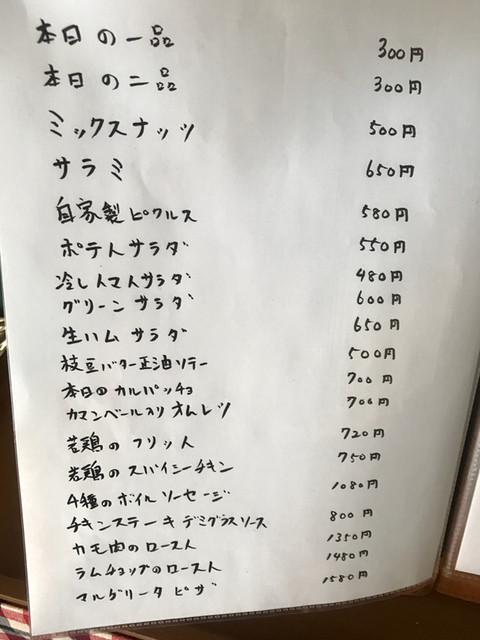 本日の一品 300円
本日の二品 300円
ミックスナッツ 500円
サラミ 650円
自家製ピクルス 580円
ポテトサラダ 550円
冷しトマトサラダ 480円
グリーンサラダ 600円
生ハムサラダ 650円
枝豆バター正油ソテー 500円
本日のカルパッチョ 700円
カマンベール入りオムレツ 700円
若鶏のフリット 720円
若鶏のスパイシーチキン 750円
4種のボイルソーセージ 1080円
チキンステーキデミグラスソース 800円
カモ肉のロースト 1350円
ラムチョップのロースト 1480円
マルゲリータピザ 1580円